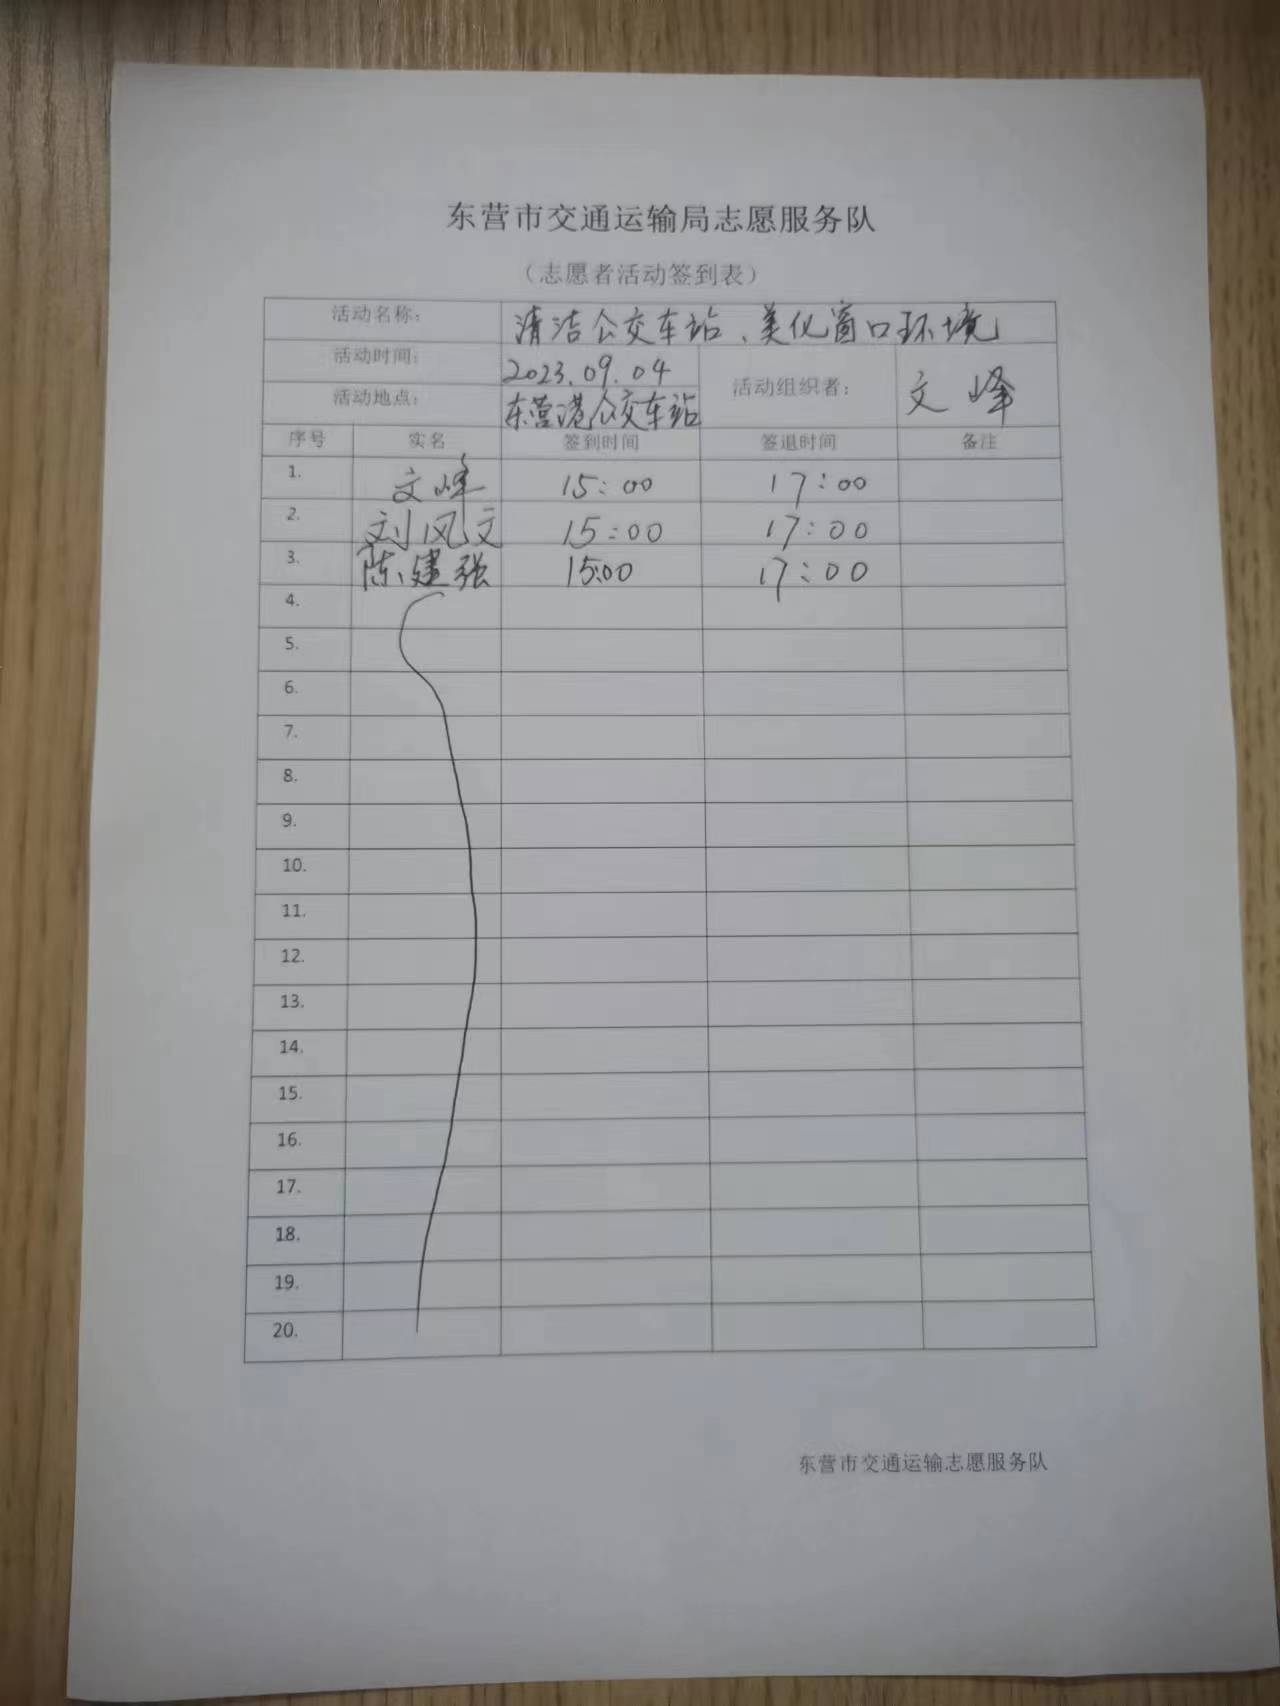 东营市交通运输局志愿服务队
（志愿者活动签到表）
活动名称： 清洁公交车站、美化窗口环境
活动时间： 2023.09.04 活动组织者： 文峰
活动地点： 东营港公交车站
序号 实名 签到时间 签退时间 备注
1. 文峰 15:00 17:00
2. 刘风文 15:00 17:00
3. 陈建强 15:00 17:00
4.
5.
6.
7.
8.
9.
10.
11.
12.
13.
14.
15.
16.
17.
18.
19.
20.
东营市交通运输志愿服务队